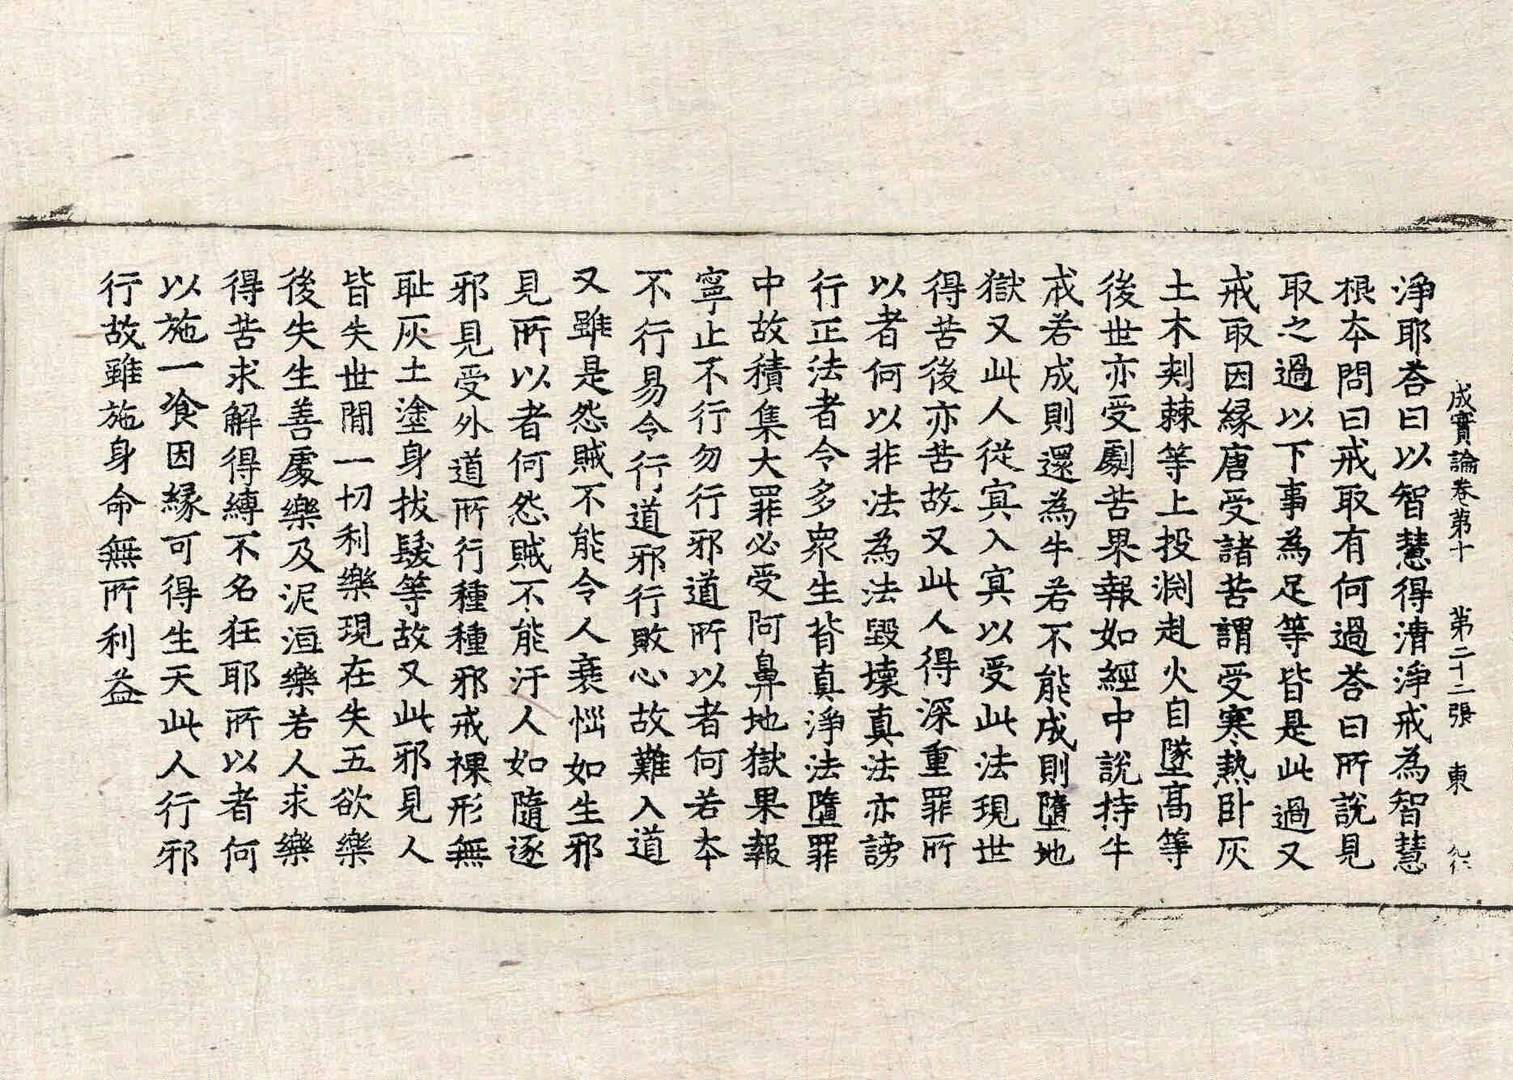 成實論卷第十 第二十二張 東
淨耶荅曰以智慧得清淨戒為智慧
根夲問曰戒取有何過荅曰所說見
取之過以下事為足等皆是此過又
戒取因縁唐受諸苦謂受寒熱卧灰
土木刺棘等上投渕赴火自墜髙等
後世亦受劇苦果報如經中說持牛
戒若成則還為牛若不能成則墮地
獄又此人從㝠入㝠以受此法現世
得苦後亦苦故又此人得深重罪所
以者何以非法為法毀壞真法亦謗
行正法者令多衆生背真淨法墮罪
中故積集大罪必受阿鼻地獄果報
寧止不行勿行邪道所以者何若夲
不行易令行道邪行敗心故難入道
又雖是怨賊不能令人衰惱如生邪
見所以者何怨賊不能汙人如隨逐
邪見受外道所行種種邪戒裸形無
耻灰土塗身拔髮等故又此邪見人
皆失世間一切利樂現在失五欲樂
後失生善處樂及泥洹樂若人求樂
得苦求解得縛不名狂耶所以者何
以施一飡因縁可得生天此人行邪
行故雖施身命無所利益